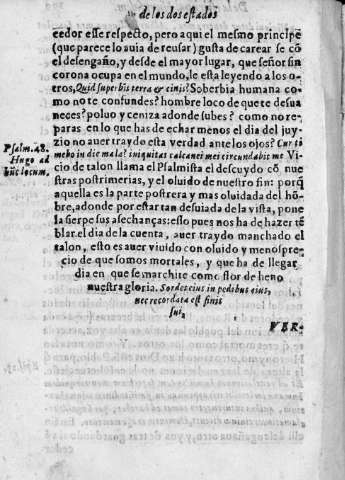 de los dos estados
cedor esse respecto, pero aqui el mesmo principe
(que parece lo auia de reusar) gusta de carear se cō
el desengaño, y desde el mayor lugar, que señor sin
corona ocupa en el mundo, le esta leyendo a los o-
tros, Quid superbis terra & cinis? Soberbia humana co-
mo no te confundes? hombre loco de que te desua
neces? poluo y ceniza adonde subes? como no re-
paras en lo que has de echar menos el dia del juy-
zio no auer traydo esta verdad ante los ojos? Cur ti
Psalm. 48.
mebo in die mala? iniquitas calcanei mei circundabit me Vi
Hugo ad
cio de talon llama el Psalmista el descuydo cō nue
hūc locum,
stras postrimerias, y el oluido de nuestro fin: porq̄
aquella es la parte postrera y mas oluidada del hō-
bre, adonde por estar tan desuiada de la vista, pone
la sierpe sus asechanças: esso pues nos ha de hazer tē
blar el dia de la cuenta, auer traydo manchado el
talon, esto es auer viuido con oluido y menospre-
cio de que somos mortales, y que ha de llegar
dia en que se marchite como flor de heno
nuestra gloria. Sordes eius in pedibus eius,
nec recordata est finis
sui,
VER-